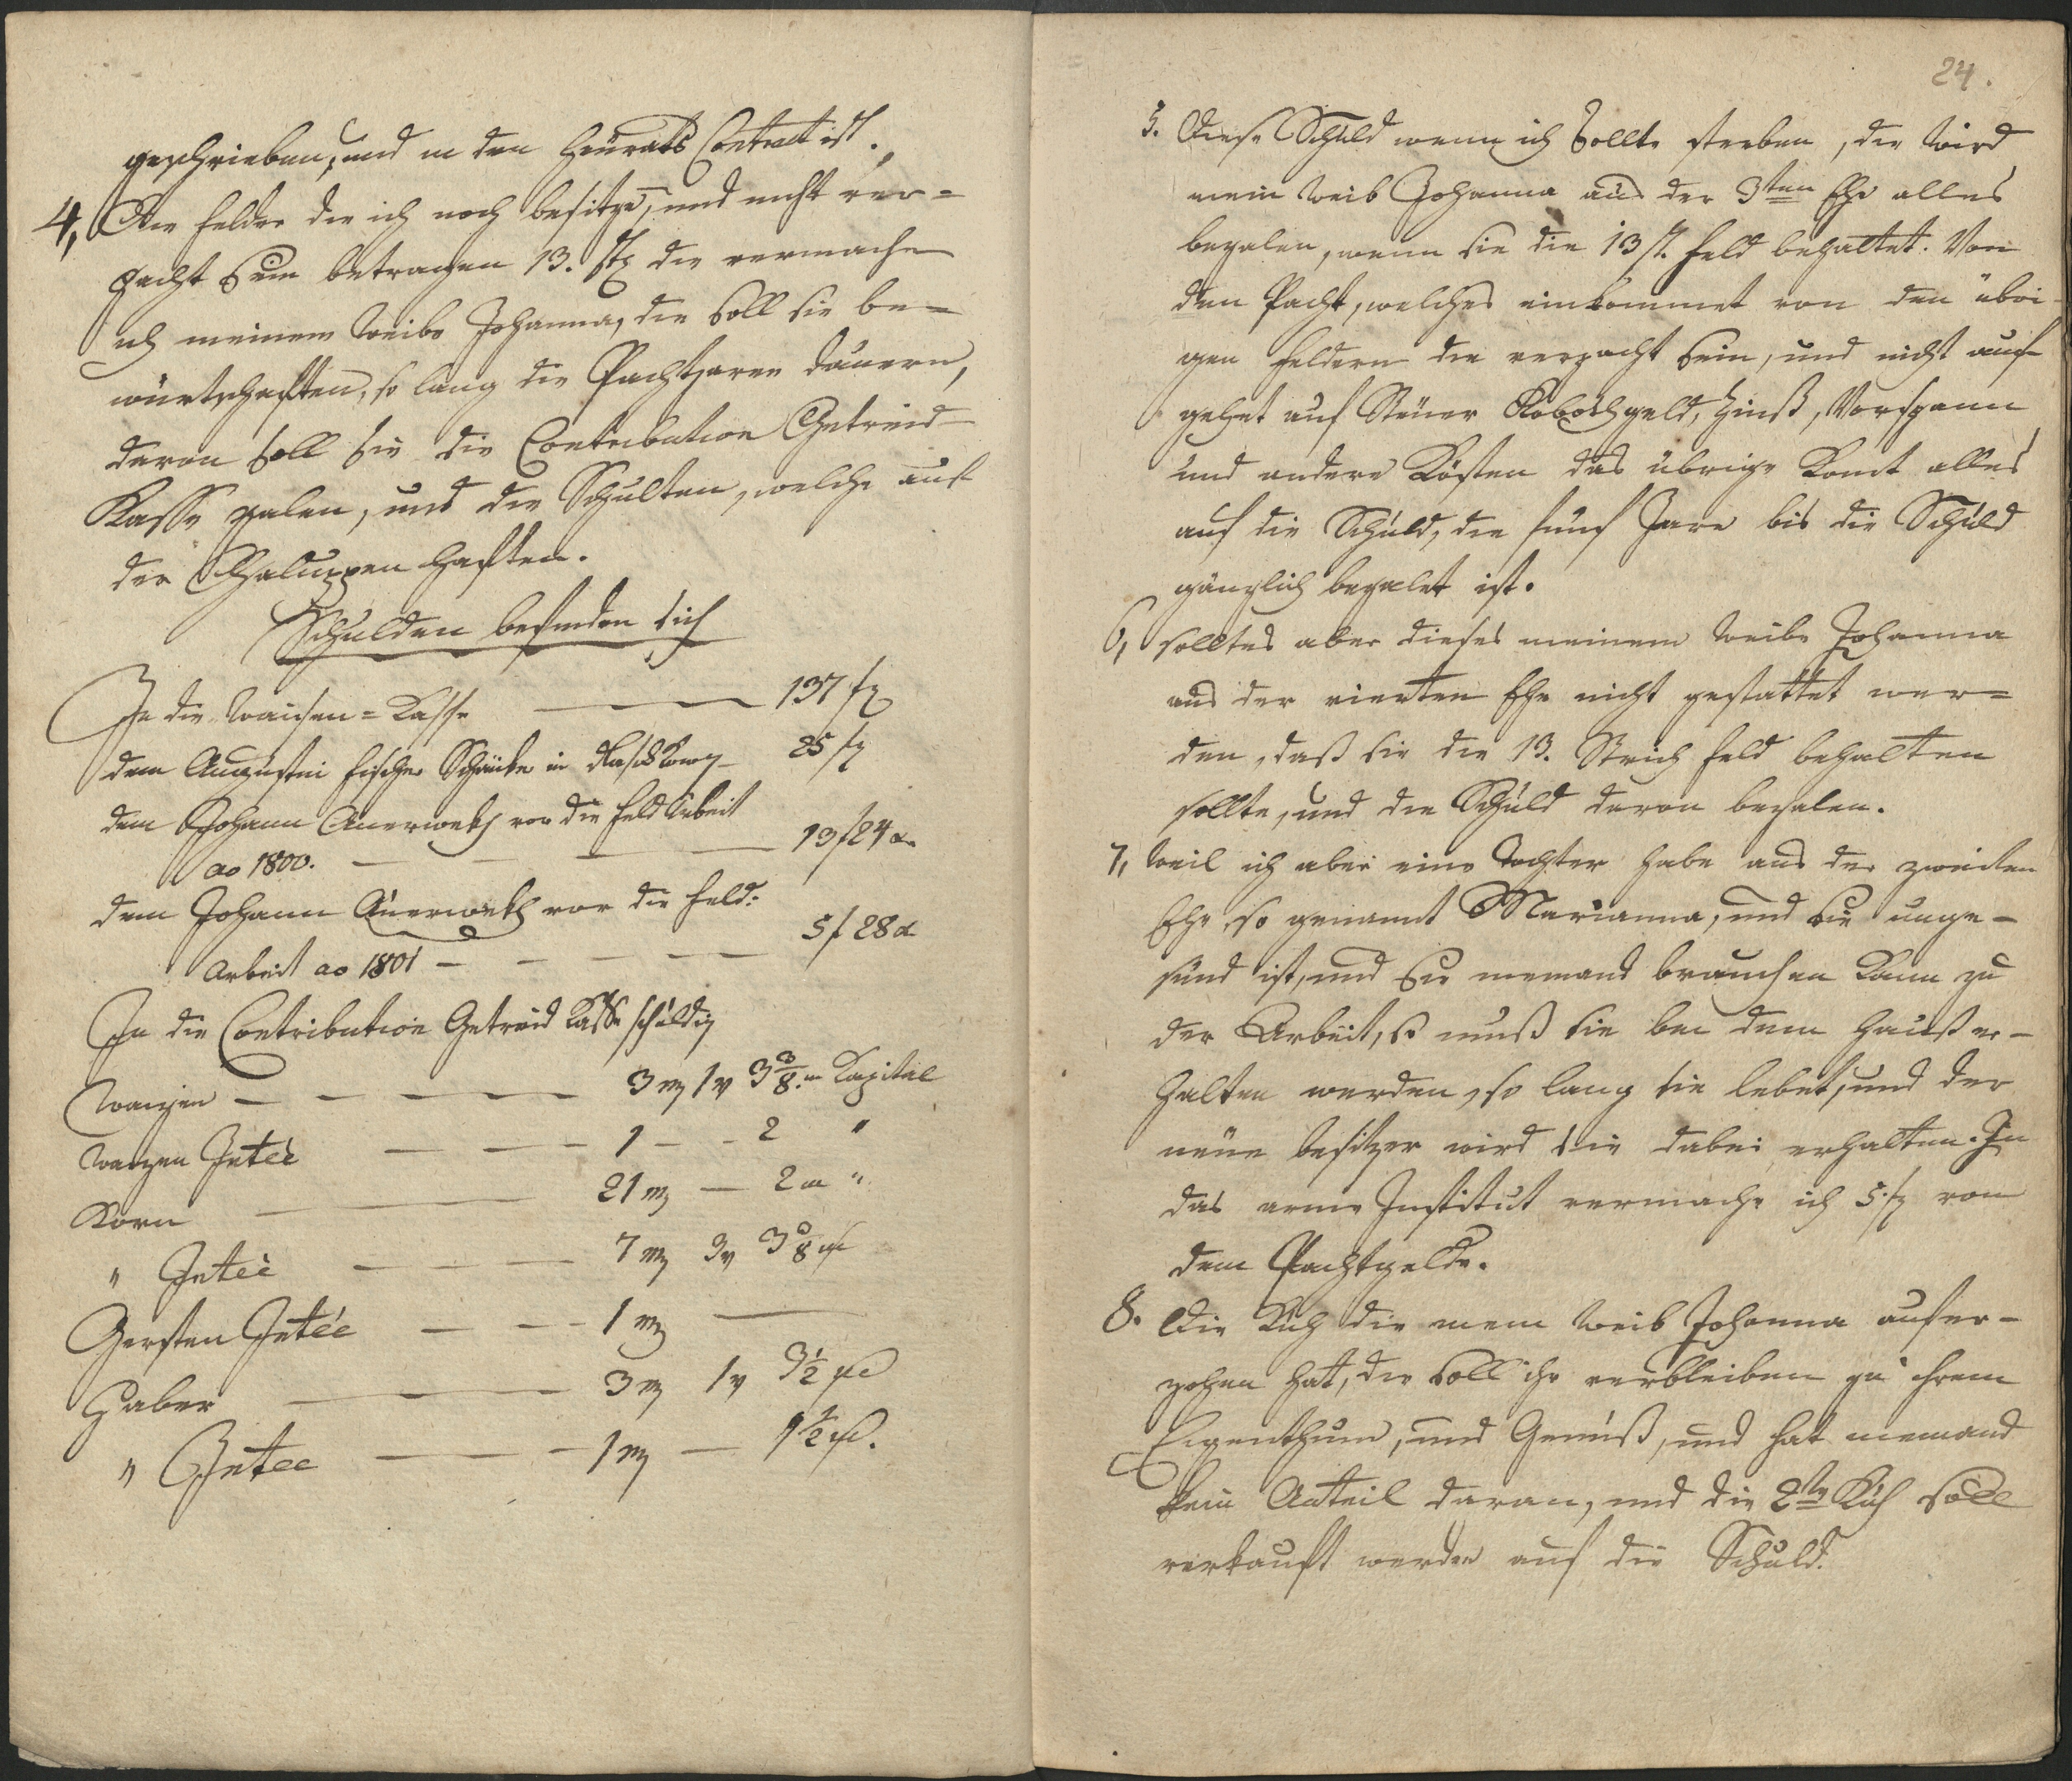 geschrieben, und in den Heurats Contract ist.
4, Die Felder die ich noch besitze, und nicht ver=
pacht sein betragen 13. die vermache
ich meinem Weibe Johanna, die soll sie be=
würtschaften, so lang die Pachtjaren dauern,
davon soll sie die Contribution Getreid
Kasse zalen, und die Schulten, welche auf
der Chaluppen haften.
Schulden befinden sich
In die Waisen=Kasse — 137 f
dem Augustin Fischer Schänker in — 25 f
dem Johann Auerweck vor die Feld Arbeit
ao 1800. — 13 f 24 x
dem Johann Auerweck vor die Feld:
Arbeit ao 1801 — 5 f 28 x
In die Contribution Getreid Kasse schuldig
Waizen — 3 m 1 v 3 3/8 m Kapital
Waizen Intèè — 1 — 2 "
Korn — 21 m — 2 m "
" Intèè — 7 m 3 v 3
Gersten Intèè — 1 m —
Haber — 3 m 1 v 3 1/2
" Intee — 1 m — 1 1/2
24.
5. Diese Schuld wenn ich sollte sterben, die wird
mein Weib Johanna aus der 3ten Ehe alles
bezalen, wenn sie die 13 st. Feld behaltet. Von
den Pacht, welches einkommet von den übri-
gen Feldern die verpacht sein, und nicht auf
gehet auf Steuer Robothgeld, Zinß, Vorspann
und andere Kösten das übrige komt alles
auf die Schuld, die fünf Jare bis die Schuld
gänzlich bezalet ist.
6, solltes aber dieses meinem Weibe Johanna
aus der vierten Ehe nicht gestattet wer=
den, daß sie die 13. Strich Feld behalten
sollte, und die Schuld davon bezalen.
7, Weil ich aber eine Tochter habe aus der zweiten
Ehe so genannt Marianna, und sie unge-
sund ist, und sie niemand brauchen kann zu
der Arbeit, so muß sie bei dem Hauß er-
halten werden, so lang sie lebet, und der
neue Besitzer wird sie dabei erhalten. In
das arme Institut vermache ich 5 f von
dem Pachtgelde.
8. Die Kuh die mein Weib Johanna aufer-
zohen hat, die soll ihr verbleiben zu ihrem
Eigenthum, und Genuß, und hat niemand
kein Anteil daran, und die 2te Kuh soll
verkauft werden auf die Schuld.